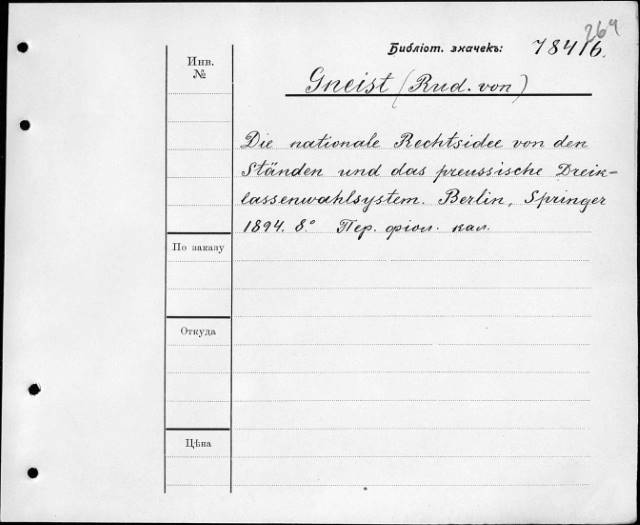 264
Библіот. значекъ: 78416.
Инв.
№
Gneist (Rud. von)
Die nationale Rechtsidee von den
Ständen und das preussische Dreik-
lassenwahlsystem. Berlin, Springer
1894. 8° Пер. фіол. кал.
По заказу
Откуда
Цѣна